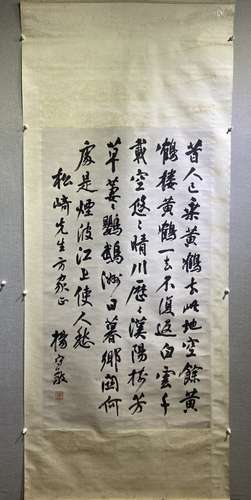 昔人已乘黃鶴去此地空餘黃
鶴樓黃鶴一去不復返白雲千
載空悠〻晴川歷〻漢陽樹芳
草萋〻鸚鵡洲日暮鄉關何
處是煙波江上使人愁
松崎先生方家正
楊守敬